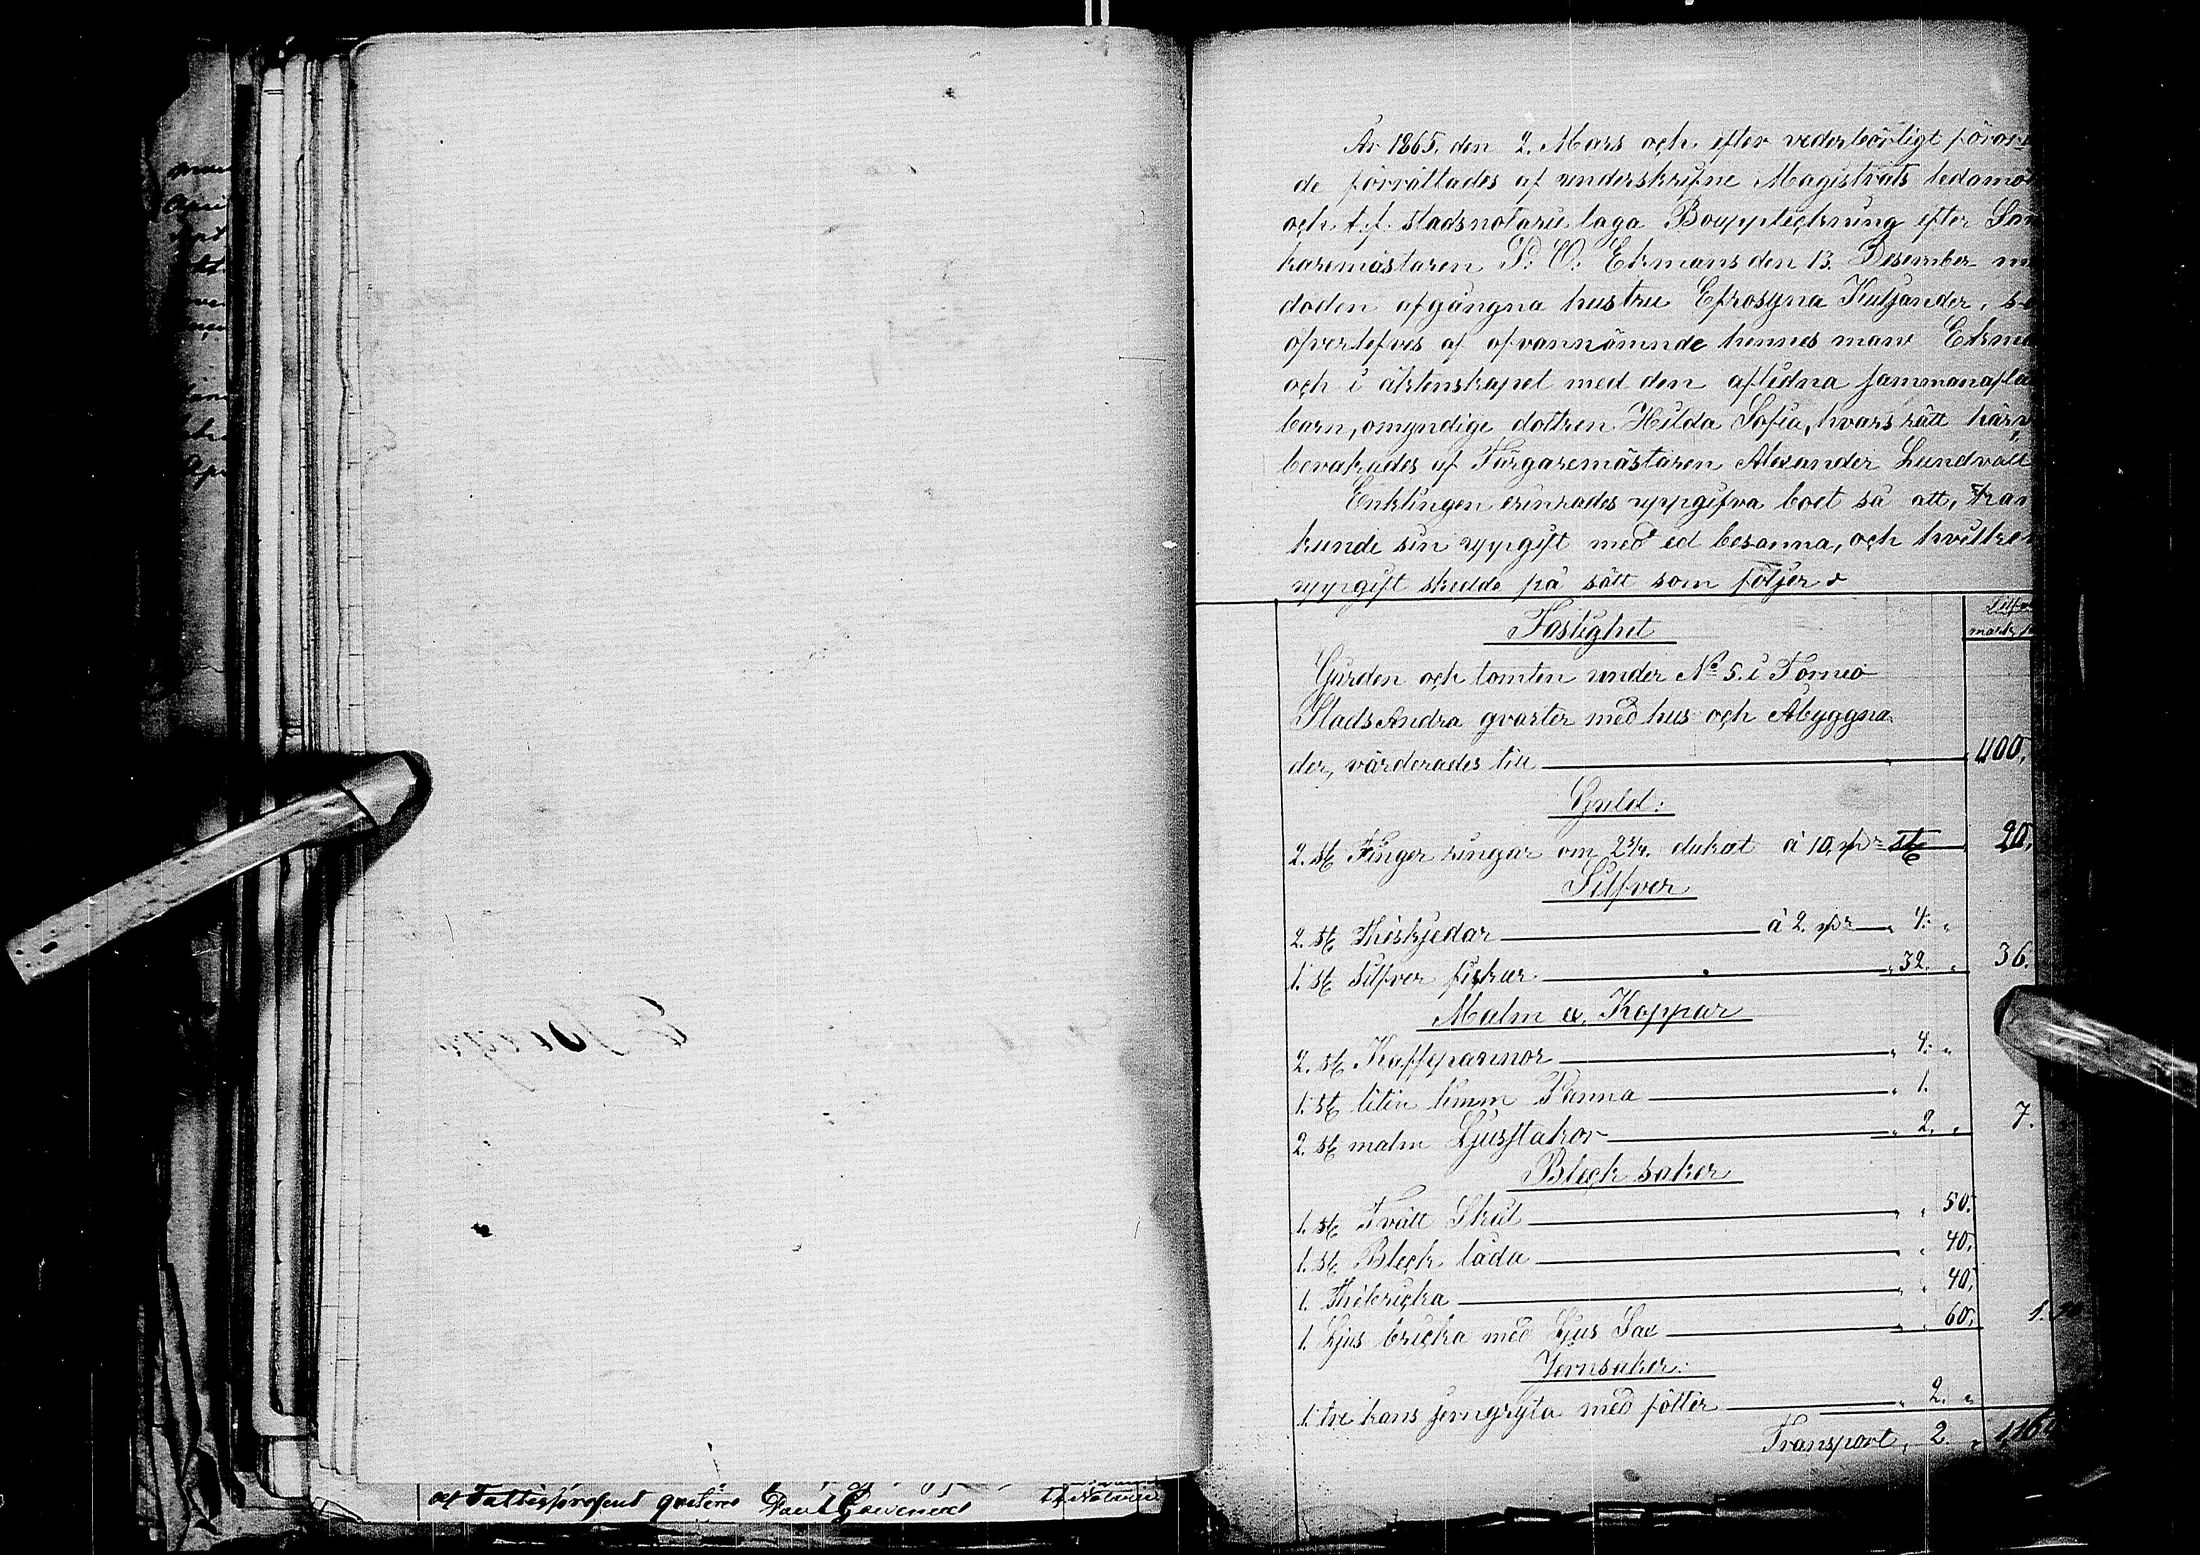 År 1865. den 2. Mars och efter vederbörligt föror-
de förrättades af underskrifne Magistrats ledamot
och t.f. stadsnotarie laga Bouppteckning efter
karemästaren P: O: Ekmans den 13. Desember
döden afgångna hustru Efrosyna Kuljander,
öfverlefves af ofvannämnde hennes man Ekman
och i äktenskapet med den aflidna sammanafla
barn, omyndige dottren Hilda Sofia, hvars rätt
bevakades af Färgaremästaren Alexander Lundvall
Enklingen erinrades uppgifva boet så att, han
kunde sin uppgift med ed besanna, och hvilken
uppgift skedde på sätt som följer
Fastighet
Gården och tomten under No 5. i Torneå
Stads Andra qvarter med hus och Åbyggna-
der, värderades till 400,
Guld:
2. st Finger ringar om 2 3/4. dukat à 10. pr st 20,
Silfver
2. st Theskjedar à 2. pr 4: „
1. st Silfver fiskar 32. „ 36.
Malm & Koppar
2. st Kaffepannor 4: „
1. st liten Panna 1.
2. st malm Ljusstakor 2. „ 7.
Bleck saker
1. st Tvätt Skål 50.
1. st Bleck låda 40,
1. Thébricka 40,
1. Ljus bricka med Ljus Sax 60,
Jernsaker:
1. tre kans jerngryta med fötter 2. „
Transport, 2. „